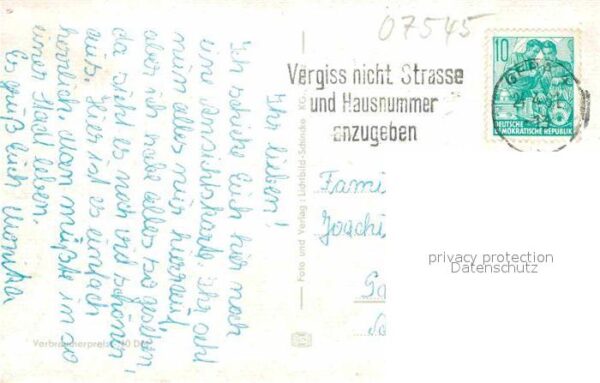 07545
Vergiss nicht Strasse
und Hausnummer
anzugeben
10
DEUTSCHE
DEMOKRATISCHE REPUBLIK
GERA
Ihr lieben!
Ich schicke Euch hier noch
eine Ansichtskarte. Ihr seht
nun alles nur hierauf,
aber ich habe alles so gesehen,
da sieht es noch viel schöner
aus. Hier ist es einfach
herrlich. Man müßte in so
einer Stadt leben.
Es grüßt Euch Monika
Foto und Verlag: Lichtbild-Schincke KG
Verbraucherpreis
Fami
Joachi
privacy protection
Datenschutz